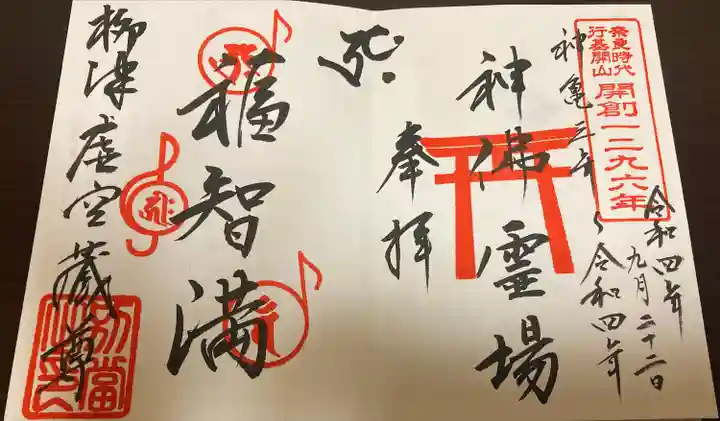 奈良時代
行基開山
開創一二九六年
神亀三年〜令和四年
令和四年
九月二十二日
神佛霊場
奉拝
福智満
柳津虚空蔵尊
別當